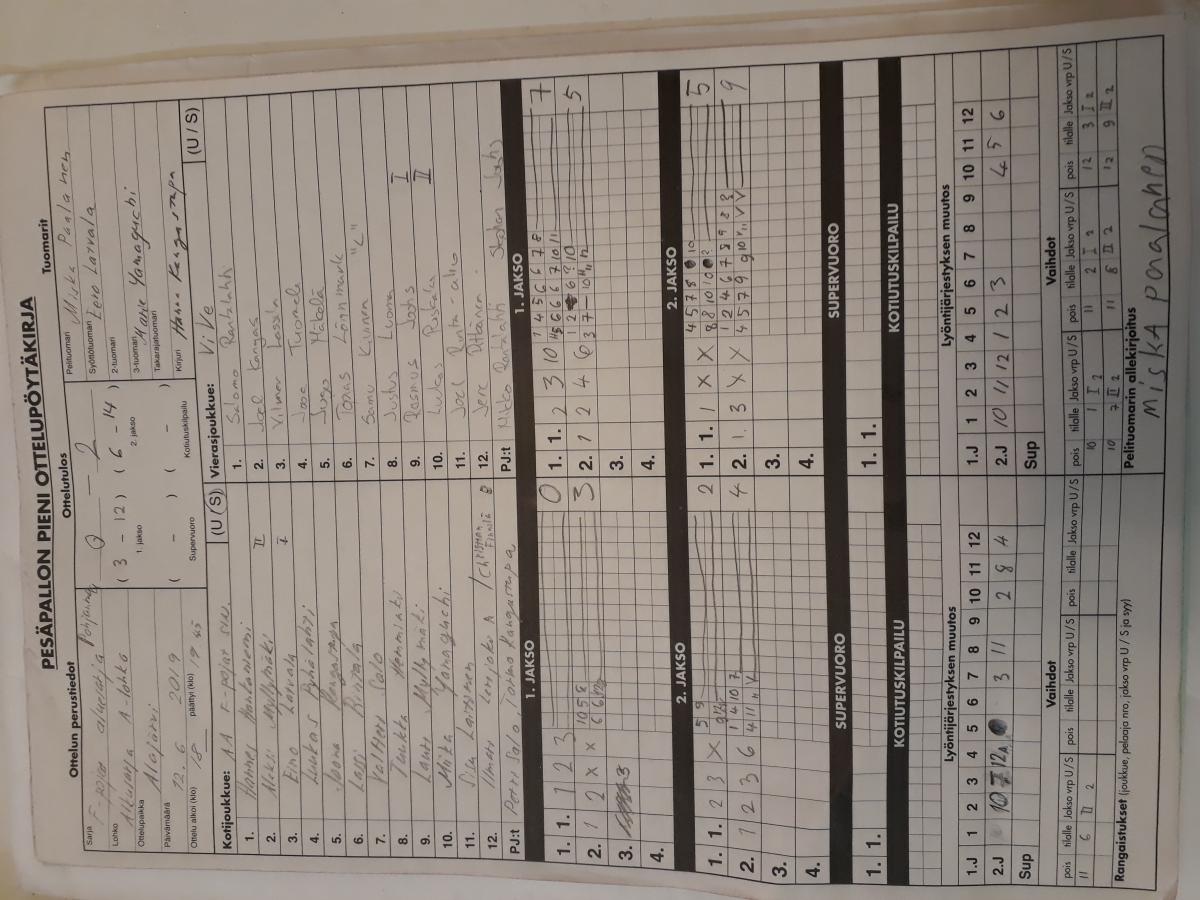 PESÄPALLON PIENI OTTELUPÖYTÄKIRJA
Ottelun perustiedot
Sarja F-pojat aluesarja Pohjanmaa
Lohko Alkusarja A-lohko
Ottelupaikka Alajärvi
Päivämäärä 12.6 2019
Ottelu alkoi (klo) 18 päättyi (klo) 19.45
Ottelutulos
0 - 2
( 3 - 12 ) ( 6 - 14 )
1. jakso 2. jakso
( - ) ( - )
Supervuoro Kotiutuskilpailu
Tuomarit
Pelituomari Miska Paalanen
Syöttötuomari Eero Larvala
2-tuomari
3-tuomari Marie Yamaguchi
Takarajatuomari
Kirjuri Hanna Kangastupa
Kotijoukkue: AA F-pojat sin. (U/S)
1. Hannes
2. Niki Myllymäki II
3. Eino Larvala I
4. Luukas Pyhälahti
5. Joona Kangastupa
6. Lassi Rintala
7. Valtteri Salo
8. Tuukka Hemminki
9. Lauri Myllymäki
10. Miika Yamaguchi
11. Piia Laitinen
12. Ilmari / Christian Finnilä
PJ:t Petri Salo, Jarkko Kangastupa
Vierasjoukkue: ViVe (U/S)
1. Salomo Rantalahti
2. Joel Kangas
3. Vilmer Lassila
4. Jooa Tuomela
5. Jugo Mäkelä
6. Topias Långsmark
7. Samu Kivinen "L"
8. Justus Luoma I
9. Rasmus Joahs II
10. Luukas Puskala
11. Joel Rinta-aho
12. Jere Pitkänen
PJ:t Mikko Rantalahti Stephan Joahs
1. JAKSO
1. 1. 1 2 3 0
2. 1 2 X X 3
3.
4.
1. JAKSO
1. 1. 2 3 10 7
2. 1 2 4 6 5
3.
4.
2. JAKSO
1. 1. 2 3 X 2
2. 1 2 3 6 4
3.
4.
2. JAKSO
1. 1. 1 X X 5
2. 1. 3 X X 9
3.
4.
SUPERVUORO
1. 1.
SUPERVUORO
1. 1.
KOTIUTUSKILPAILU
KOTIUTUSKILPAILU
Lyöntijärjestyksen muutos
1.J 1 2 3 4 5 6 7 8 9 10 11 12
2.J 10 7 12 3 11 2 8 4
Sup
Lyöntijärjestyksen muutos
1.J 1 2 3 4 5 6 7 8 9 10 11 12
2.J 10 11 12 1 2 3 4 5 6
Sup
Vaihdot
pois tilalle Jakso vrp U/S pois tilalle Jakso vrp U/S pois tilalle Jakso vrp U/S
11 6 II 2
Vaihdot
pois tilalle Jakso vrp U/S pois tilalle Jakso vrp U/S pois tilalle Jakso vrp U/S
10 1 I 2 11 2 I 2 12 3 I 2
10 7 II 2 11 8 II 2 12 9 II 2
Rangaistukset (joukkue, pelaaja nro, jakso vrp U / S ja syy)
Pelituomarin allekirjoitus
MISKA PAALANEN